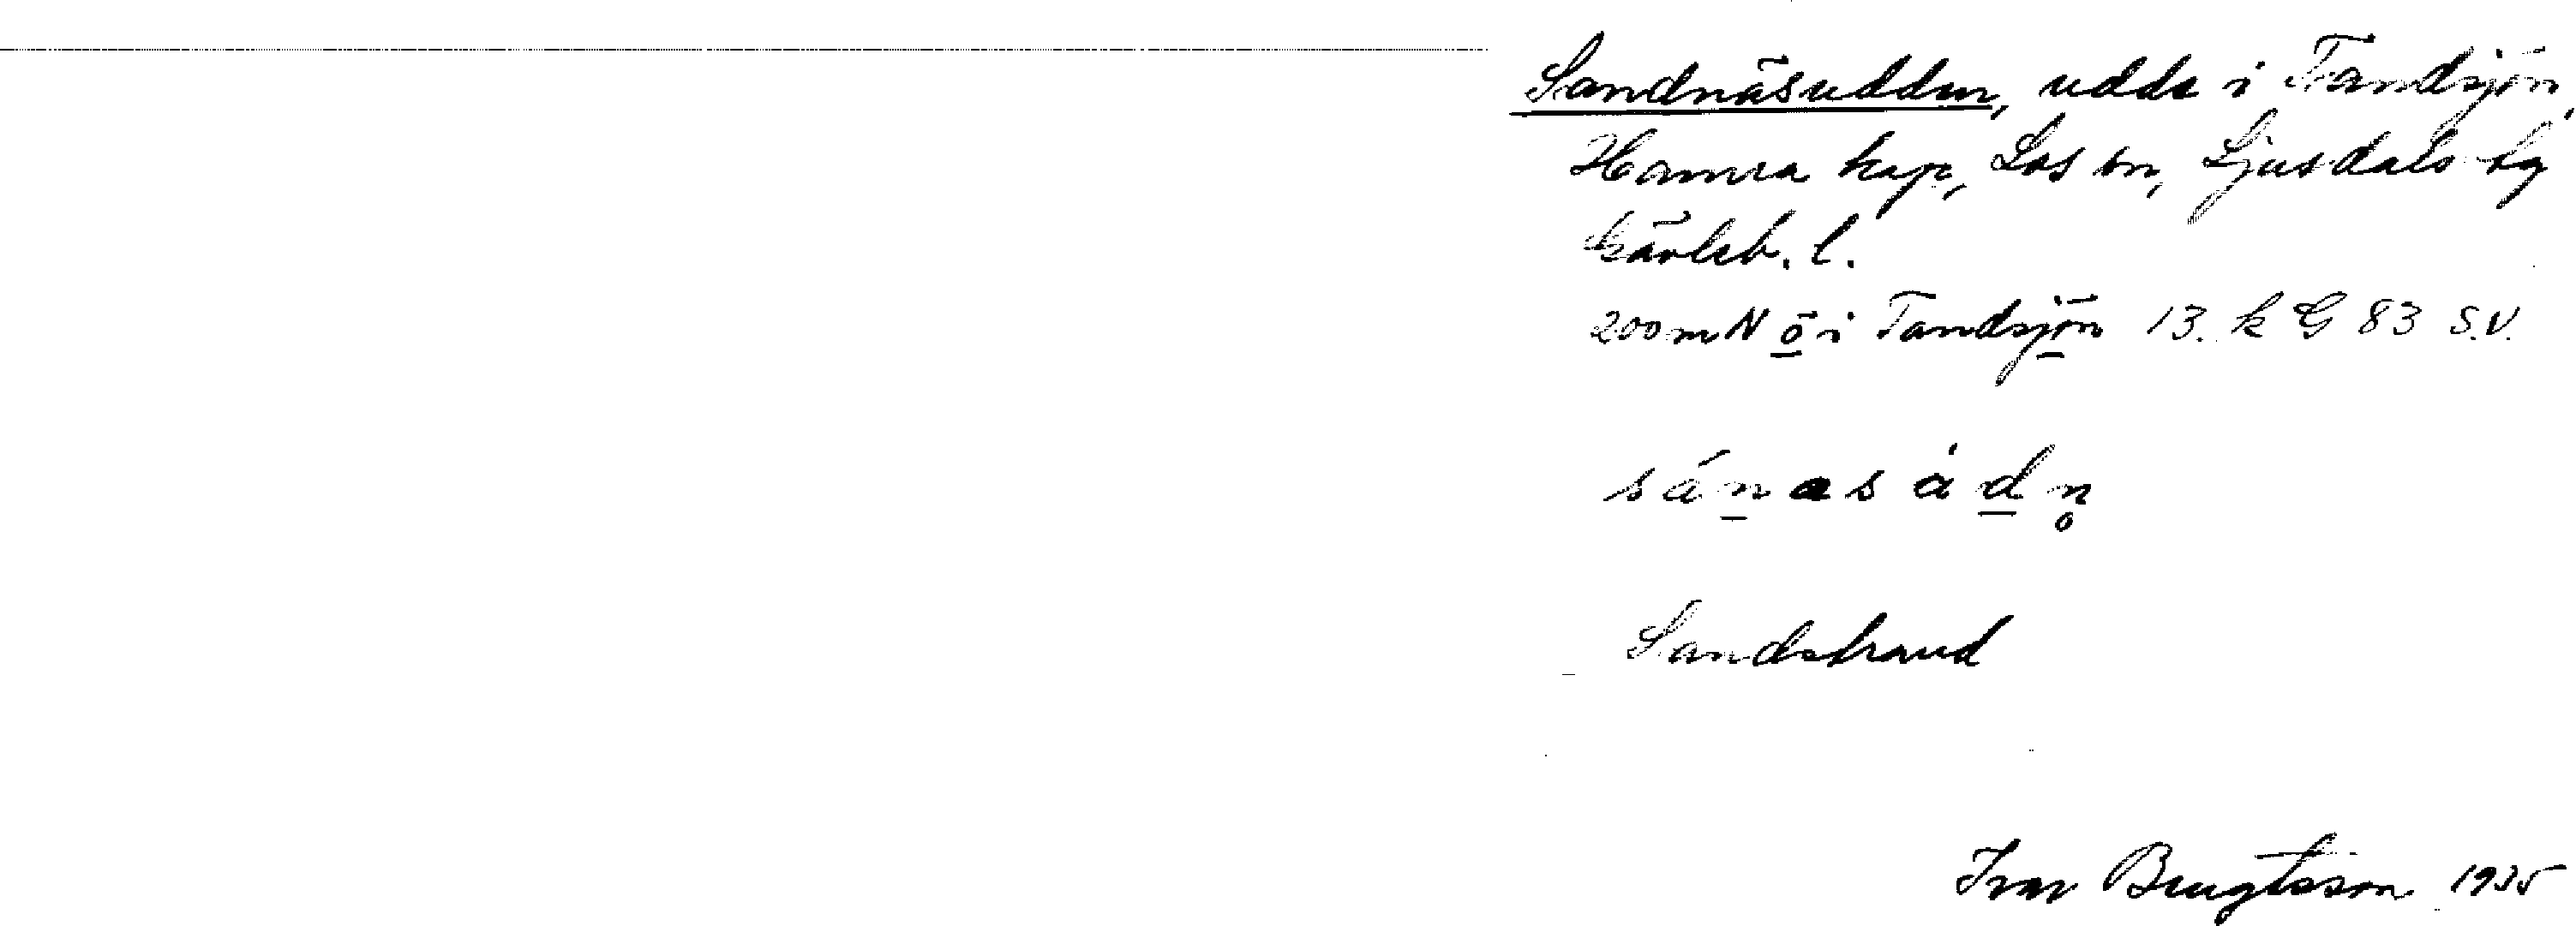 Sandnäsudden, udde i Tandsjön,
Hamra kap, Los sn, Ljusdals tg
Gävleb. l.
200 m N ö i Tandsjön 13. k G 83 S.V.
sánasàdn̥
Sandstrand
Ivar Bengtsson 1935